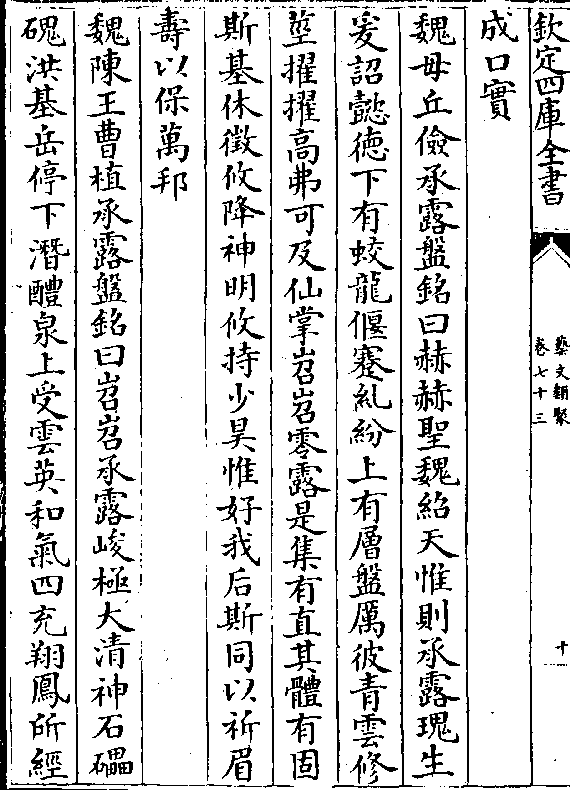 欽定四庫全書
藝文類聚
卷七十三
十
成口實
魏毋丘儉承露盤銘曰赫赫聖魏紹天惟則承露瑰生
爰詔懿德下有蛟龍偃蹇虬紛上有層盤厲彼青雲修
莖擢擢高弗可及仙掌岧岧零露是集有直其體有固
斯基休徵攸降神明攸持少昊惟好我后斯同以祈眉
壽以保萬邦
魏陳王曹植承露盤銘曰岧岧承露峻極大清神石礧
磈洪基岳停下潛醴泉上受雲英和氣四充翔鳳所經